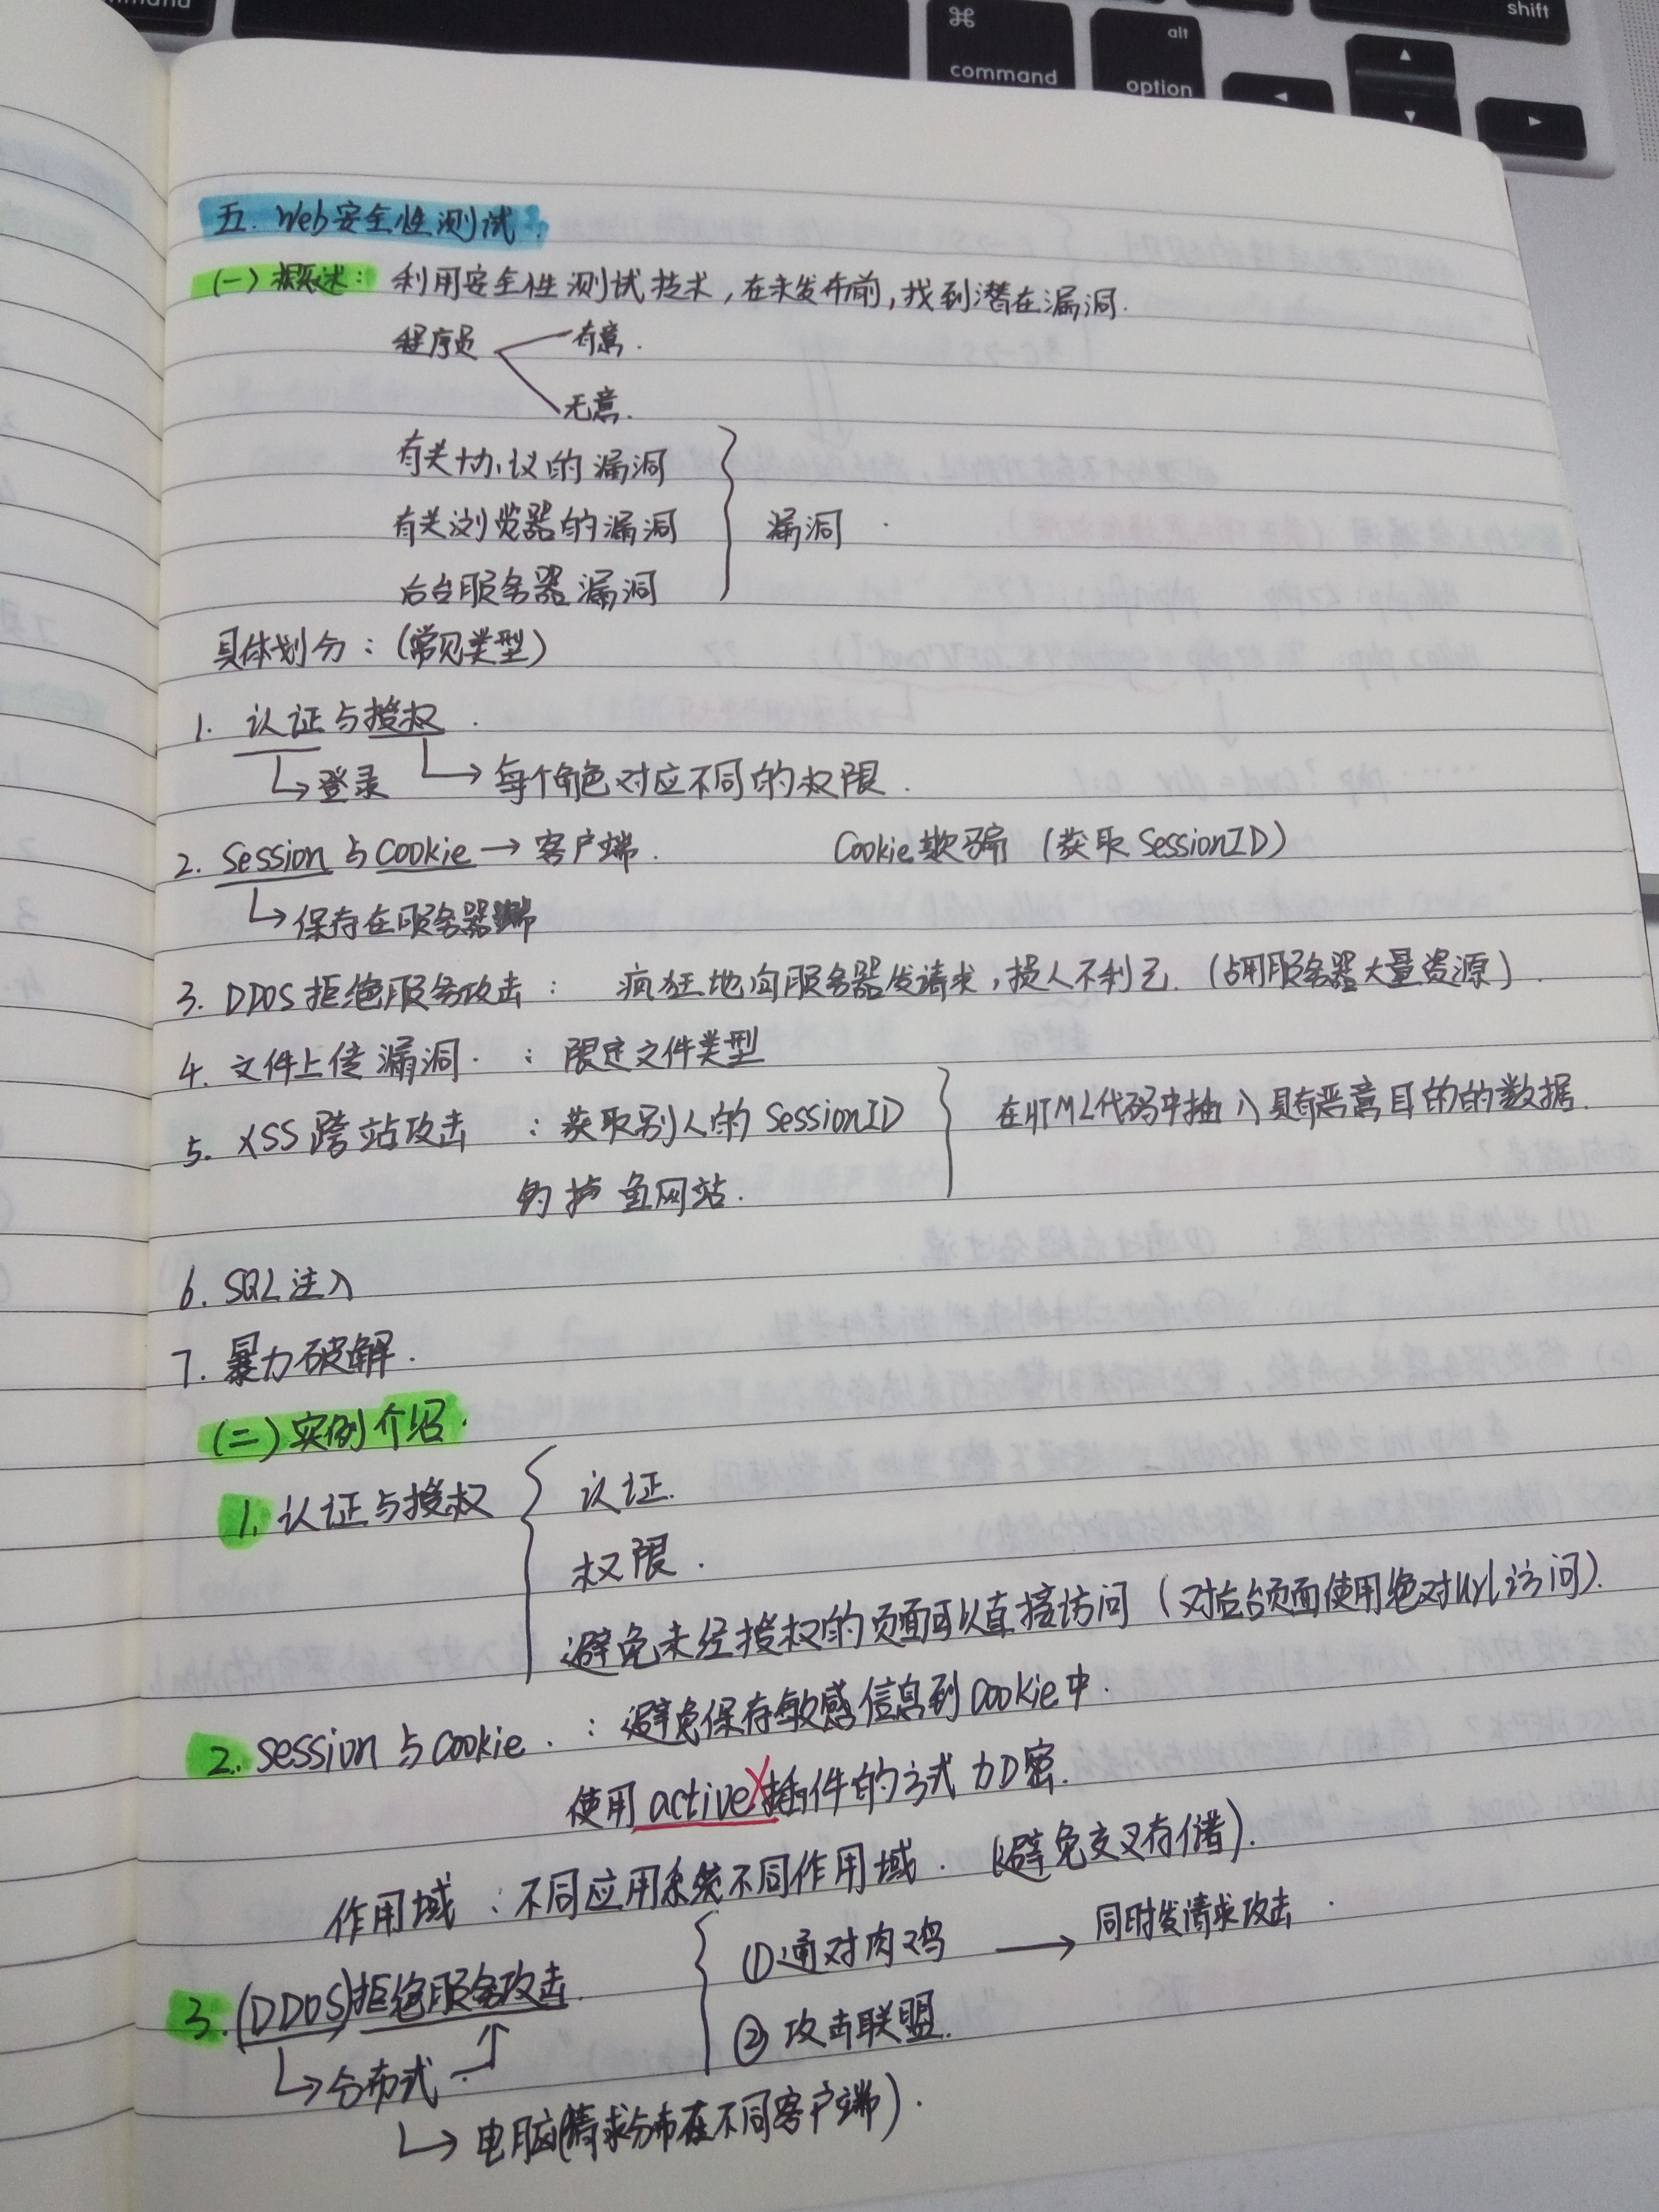 mmand
⌘
command
alt
option
shift
五. Web安全性测试.
(一) 概述: 利用安全性测试技术,在未发布前,找到潜在漏洞.
程序员 有意.
无意.
有关协议的漏洞
有关浏览器的漏洞 漏洞.
后台服务器漏洞
具体划分:(常见类型)
1. 认证与授权.
→登录 →每个角色对应不同的权限.
2. Session与Cookie→客户端. Cookie欺骗 (获取SessionID)
→保存在服务器端
3. DDOS拒绝服务攻击: 疯狂地向服务器发请求,损人不利己.(占用服务器大量资源).
4. 文件上传漏洞.: 限定文件类型
5. XSS跨站攻击 : 获取别人的SessionID 在HTML代码中插入具有恶意目的的数据.
钓鱼网站.
6. SQL注入
7. 暴力破解.
(二)实例介绍.
1. 认证与授权 认证.
权限.
避免未经授权的页面可以直接访问(对后台页面使用绝对url访问).
2. Session与Cookie.: 避免保存敏感信息到Cookie中.
使用activeX插件的方式加密.
作用域:不同应用系统不同作用域.(避免交叉存储).
3. (DDOS)拒绝服务攻击. ①通对肉鸡 → 同时发请求攻击.
②攻击联盟.
→分布式.
→电脑(请求分布在不同客户端).